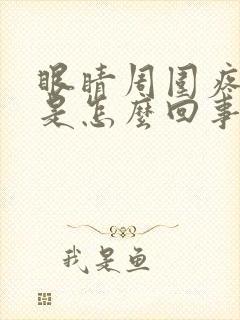 眼睛周围疼
是怎麼回事
我是鱼